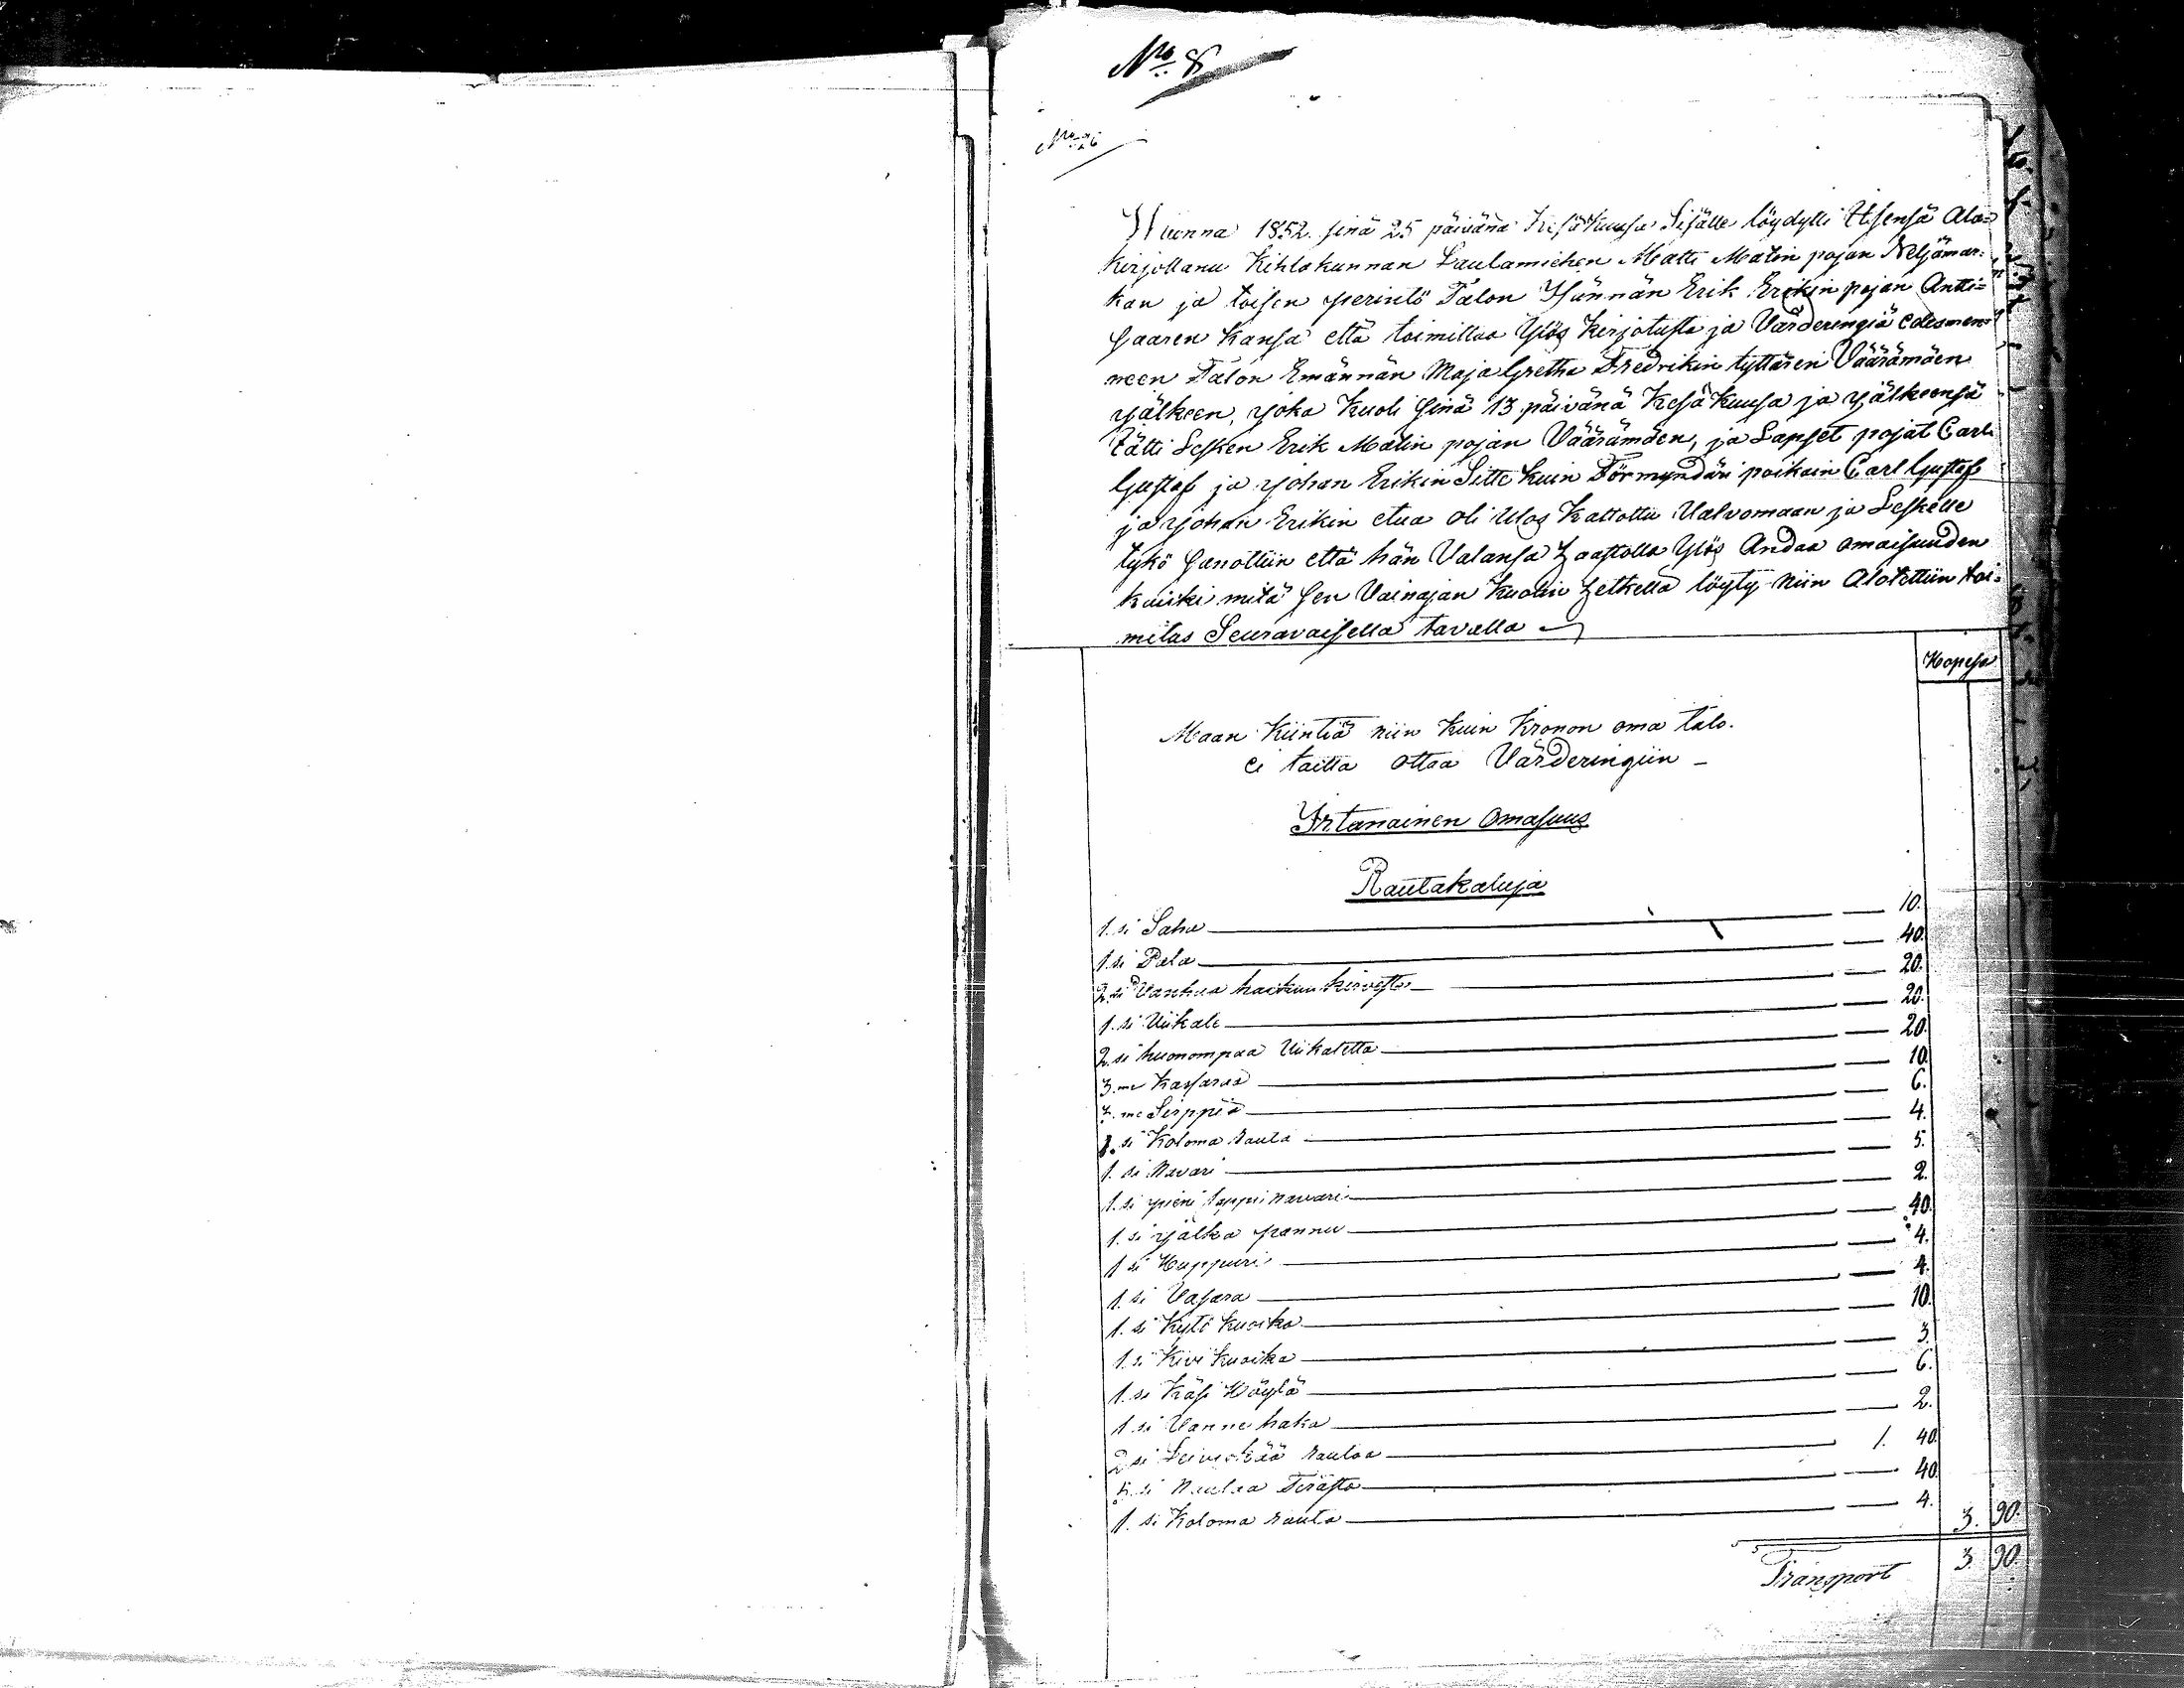 No 8
Wuonna 1852. sinä 25 päivänä Kesäkuusa Sisälle löydylli Itsensä Ala=
kirjottanu Kihlakunnan Laulamiehen Matti Matin pojan Neljämar=
kan ja toisen perintö Talon Isännän Erik Erikin pojan Antti=
saaren kansa että toimittaa Ylös kirjotusta ja Värderingiä edesmen=
neen Talon Emännän Maja Gretha Fredrikin tyttären Väärämäen
jälkeen, joka kuoli sinä 13 päivänä Kesäkuusa ja jälkeensä
Jätti Lesken Erik Matin pojan Väärämäen, ja Lapset pojat Carl
Gustaf ja Johan Erikin Sitte kuin Förmyndäri poikain Carl Gustaf
ja Johan Erikin etua oli Ulos kattottu Valvomaan ja Leskelle
tykö sanottiin että hän Valansa zaastolla Ylös Andaa omaisuuden
kaikki mitä sen Vainajan kuolin zetkellä löyty niin Alotettiin toi=
mitus Seuravaisella tavalla
Hopesa
Maan kiintiä niin kuin Kronon oma talo
ei taitta ottaa Värderingiin
Irtanainen Omasuus
Rautakaluja
1. si Saha 10.
1. si Pata 40.
2. si Vanhaa hakkuu kirvestä 20.
1. si Viikate 20.
2. si huonompaa Viikatetta 20.
3. me kassaraa 10.
3. me Sirppiä 6.
1. si Koloma rauta 4.
1. si Navari 5.
1. si pieni tappi navari 2.
1. si jalka pannu 40.
1 si Huppuri 4.
1. si Vasara 4.
1. si Kytö kuokka 10.
1. si Kivi kuokka 3.
1. si Käsi Höylä 6.
1 si Vanne haka 2.
2 si rautaa 1. 40.
si Naulaa Terästä 40.
1. si Koloma rauta 4. 3. 90.
Transport 3. 90.